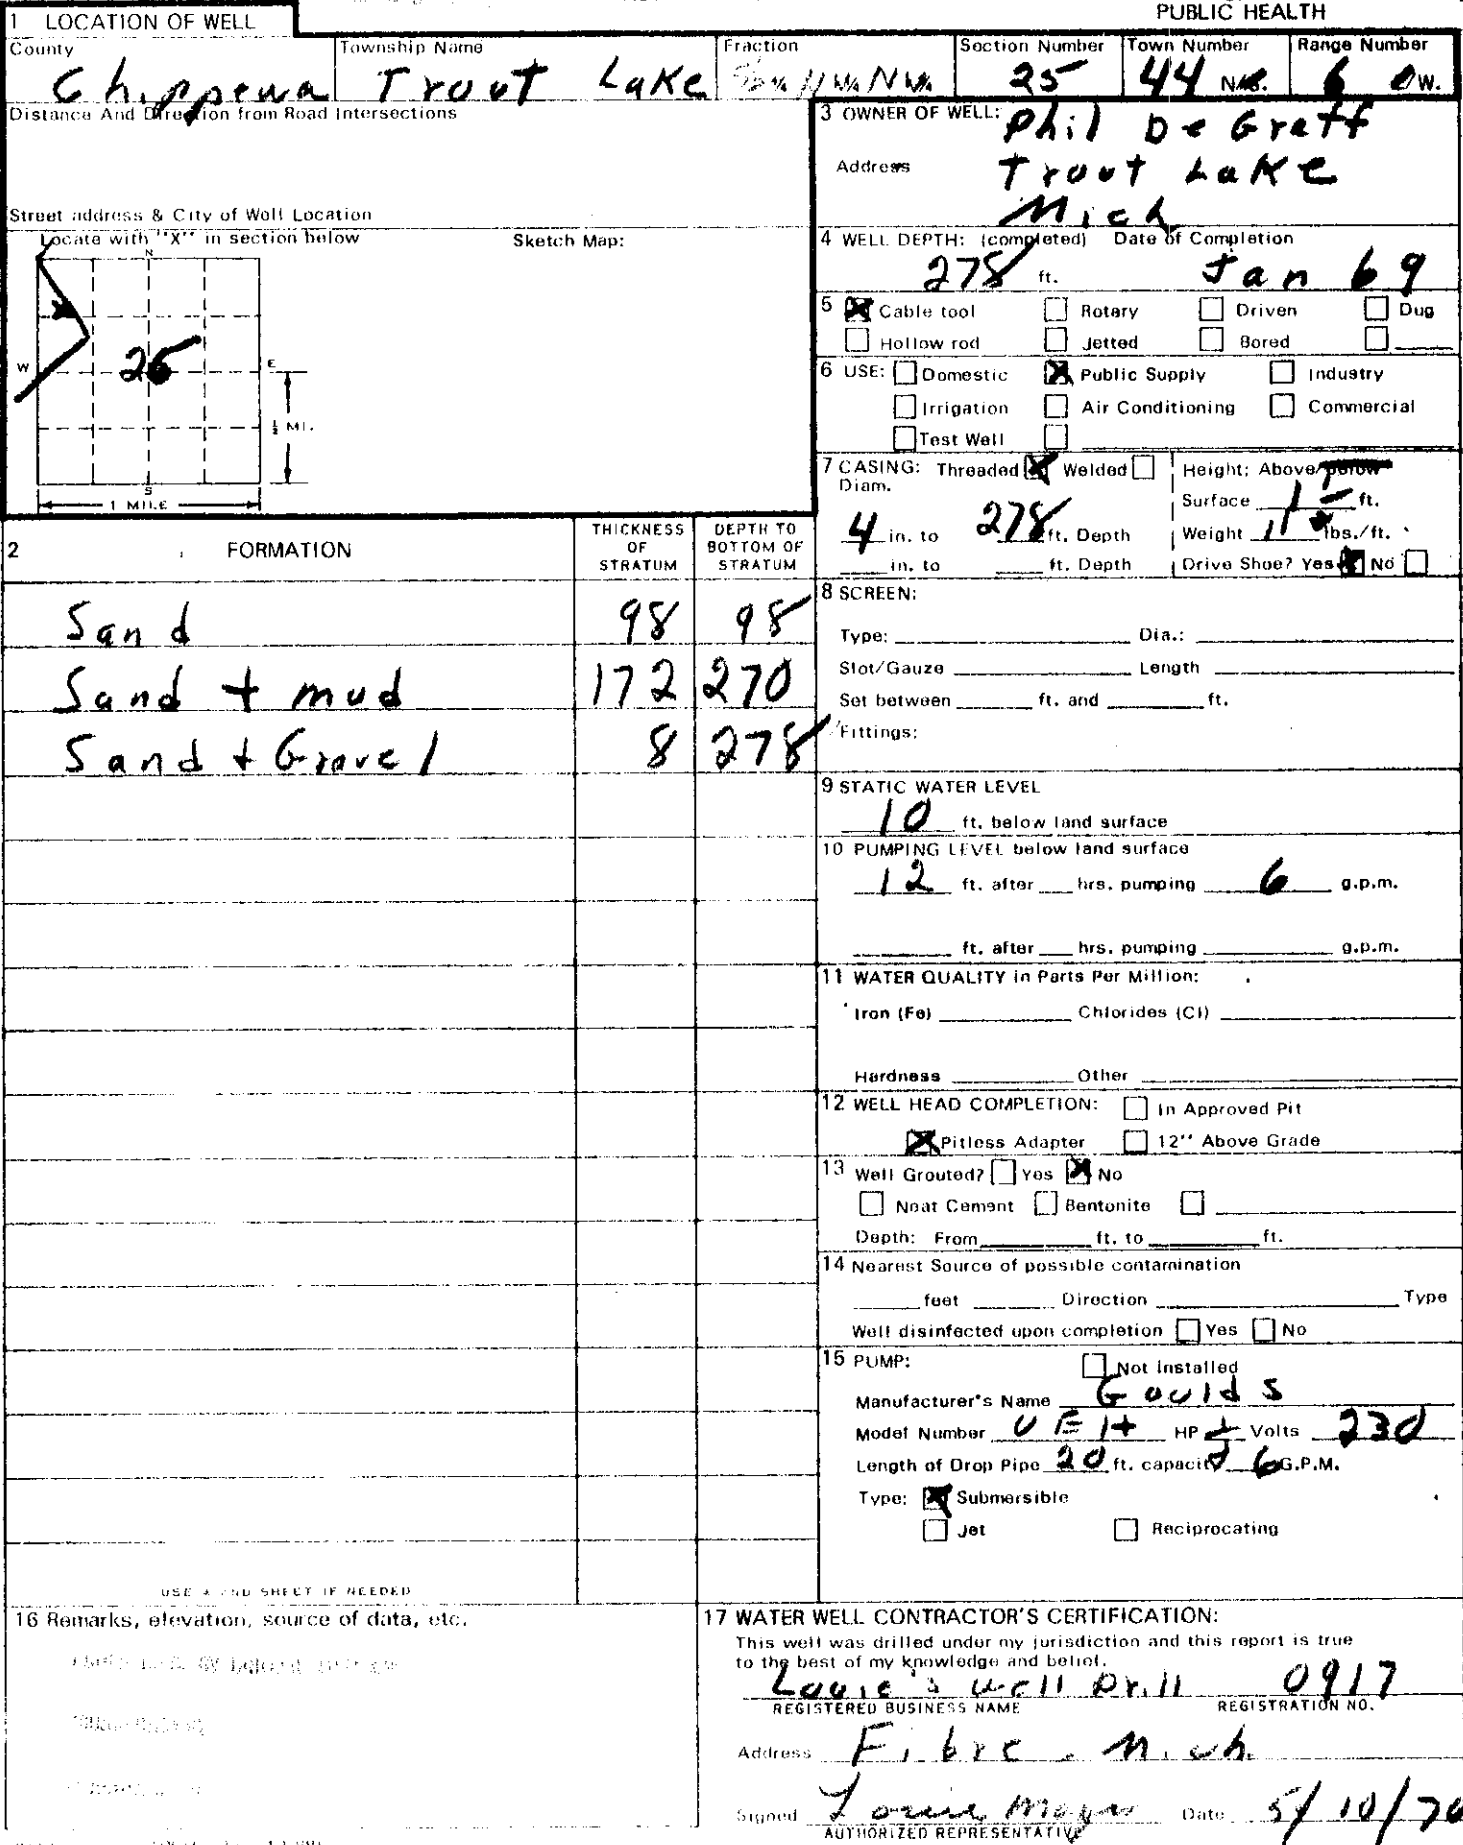 PUBLIC HEALTH
1 LOCATION OF WELL
County Township Name Fraction Section Number Town Number Range Number
Chippewa Trout Lake NW NW 25 44 N/S. 6 E/W.
Distance And Direction from Road Intersections
Street address & City of Well Location
Locate with "X" in section below Sketch Map:
N
W
E
26
½ MI.
S
1 MILE
3 OWNER OF WELL: Phil DeGraff
Address Trout Lake
Mich
4 WELL DEPTH: (completed) Date of Completion
278 ft. Jan 69
5 Cable tool Rotary Driven Dug
Hollow rod Jetted Bored
6 USE: Domestic Public Supply Industry
Irrigation Air Conditioning Commercial
Test Well
7 CASING: Threaded Welded Height: Above/below
Diam.
Surface 1 ft.
4 in. to 278 ft. Depth Weight 11 lbs./ft.
in. to ft. Depth Drive Shoe? Yes No
2 FORMATION THICKNESS OF STRATUM DEPTH TO BOTTOM OF STRATUM
Sand 98 98
Sand + mud 172 270
Sand + Gravel 8 278
USE A 2ND SHEET IF NEEDED
8 SCREEN:
Type: Dia.:
Slot/Gauze Length
Set between ft. and ft.
Fittings:
9 STATIC WATER LEVEL
10 ft. below land surface
10 PUMPING LEVEL below land surface
12 ft. after hrs. pumping 6 g.p.m.
ft. after hrs. pumping g.p.m.
11 WATER QUALITY in Parts Per Million:
Iron (Fe) Chlorides (Cl)
Hardness Other
12 WELL HEAD COMPLETION: In Approved Pit
Pitless Adapter 12" Above Grade
13 Well Grouted? Yes No
Neat Cement Bentonite
Depth: From ft. to ft.
14 Nearest Source of possible contamination
feet Direction Type
Well disinfected upon completion Yes No
15 PUMP: Not Installed
Manufacturer's Name Goulds
Model Number HP Volts 230
Length of Drop Pipe 20 ft. capacity 6 G.P.M.
Type: Submersible
Jet Reciprocating
16 Remarks, elevation, source of data, etc.
17 WATER WELL CONTRACTOR'S CERTIFICATION:
This well was drilled under my jurisdiction and this report is true
to the best of my knowledge and belief.
Louie's Well Drill 0917
REGISTERED BUSINESS NAME REGISTRATION NO.
Address Fibre, Mich
Signed Louie Date 5/10/70
AUTHORIZED REPRESENTATIVE